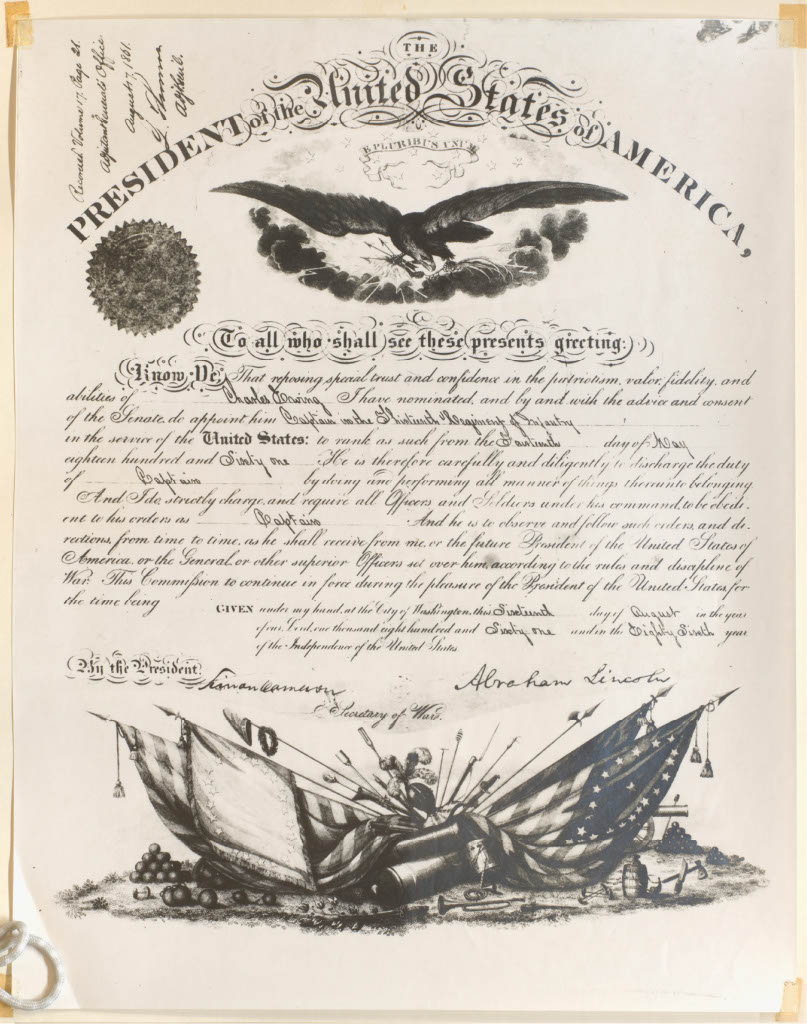 Recorded Volume 17, Page 21.
Adjutant Generals Office
August 7, 1861.
L. Thomas
Adjt. Genl.
THE
PRESIDENT of the United States of AMERICA,
E PLURIBUS UNUM
To all who shall see these presents greeting:
Know Ye, That reposing special trust and confidence in the patriotism, valor, fidelity, and
abilities of Charles Ewing I have nominated, and by and with the advice and consent
of the Senate, do appoint him Captain in the Thirteenth Regiment of Infantry
in the service of the United States: to rank as such from the Fourteenth day of May
eighteen hundred and Sixty one He is therefore carefully and diligently to discharge the duty
of Captain by doing and performing all manner of things thereunto belonging
And I do strictly charge, and require all Officers and Soldiers under his command, to be obedi-
ent to his orders as Captain And he is to observe and follow such orders, and di-
rections, from time to time, as he shall receive from me, or the future President of the United States of
America, or the General, or other superior Officers set over him, according to the rules and discipline of
War. This Commission to continue in force during the pleasure of the President of the United States, for
the time being
GIVEN under my hand, at the City of Washington, this Sixteenth day of August in the year
of our Lord, one thousand eight hundred and Sixty one and in the Eighty Sixth year
of the Independence of the United States.
By the President.
Simon Cameron
Abraham Lincoln
Secretary of War.